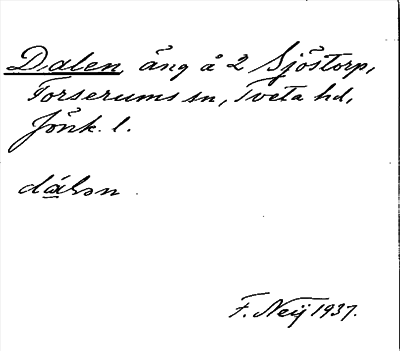 Dalen, äng å 2 Sjöstorp,
Forserums sn, Tveta hd,
Jönk. l.
dálən
F. Neij 1937.